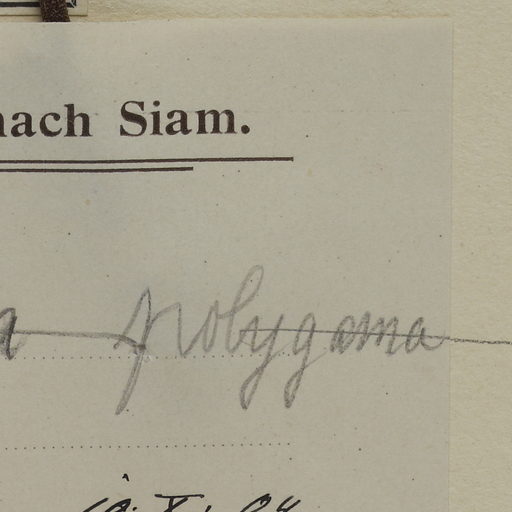 nach Siam.
polygama